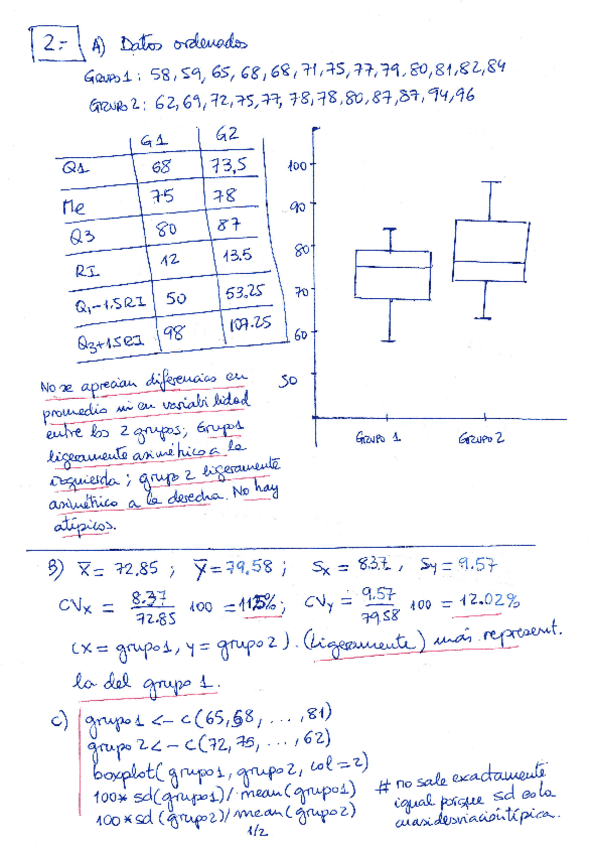 2.- A) Datos ordenados
GRUPO 1: 58, 59, 65, 68, 68, 71, 75, 77, 79, 80, 81, 82, 84
GRUPO 2: 62, 69, 72, 75, 77, 78, 78, 80, 87, 87, 94, 96
G1 G2
Q1 68 73,5
Me 75 78
Q3 80 87
RI 12 13.5
Q1-1.5RI 50 53.25
Q3+1.5RI 98 107.25
100
90
80
70
60
50
GRUPO 1 GRUPO 2
No se aprecian diferencias en
promedio ni en variabilidad
entre los 2 grupos; Grupo 1
ligeramente asimétrico a la
izquierda; grupo 2 ligeramente
asimétrico a la derecha. No hay
atípicos.
B) X̄ = 72.85 ; Ȳ = 79.58 ; Sx = 8.37 , Sy = 9.57
CVx = 8.37/72.85 100 = 11.5% ; CVy = 9.57/79.58 100 = 12.02%
(X = grupo 1, Y = grupo 2). (Ligeramente) más represent.
la del grupo 1.
C) grupo1 <- c(65,68, ..., 81)
grupo2 <- c(72, 75, ..., 62)
boxplot(grupo1, grupo2, col=2)
100* sd(grupo1)/mean(grupo1)
100* sd(grupo2)/mean(grupo2)
# no sale exactamente
igual porque sd es la
cuasidesviación típica.
1/2